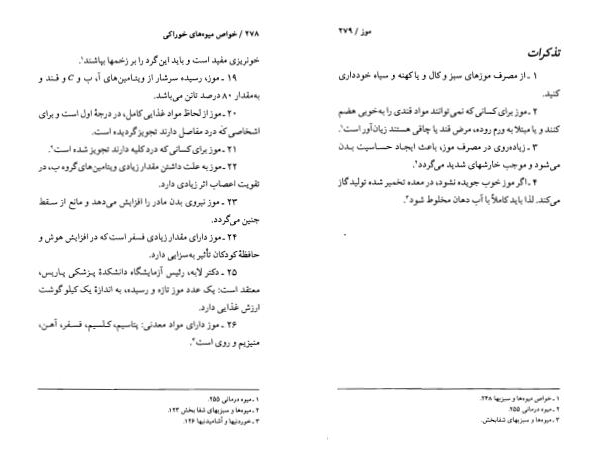 ۲۷۸ / خواص میوه‌های خوراکی
خونریزی مفید است و باید این گرد را بر زخمها بپاشند۱.
۱۹ ـ موز، رسیده سرشار از ویتامین‌های آ، ب و C و قند و
به‌مقدار ۸۰ درصد تانن می‌باشد.
۲۰ ـ موز از لحاظ مواد غذایی کامل، در درجهٔ اول است و برای
اشخاصی که درد مفاصل دارند تجویز گردیده است.
۲۱ ـ موز برای کسانی که درد کلیه دارند تجویز شده است۲.
۲۲ ـ موز به علت داشتن مقدار زیادی ویتامین‌های گروه ب، در
تقویت اعصاب اثر زیادی دارد.
۲۳ ـ موز نیروی بدن مادر را افزایش می‌دهد و مانع از سقط
جنین می‌گردد.
۲۴ ـ موز دارای مقدار زیادی فسفر است که در افزایش هوش و
حافظهٔ کودکان تأثیر به‌سزایی دارد.
۲۵ ـ دکتر لابه، رئیس آزمایشگاه دانشکدهٔ پزشکی پاریس،
معتقد است: یک عدد موز تازه و رسیده، به اندازهٔ یک کیلو گوشت
ارزش غذایی دارد.
۲۶ ـ موز دارای مواد معدنی: پتاسیم، کلسیم، فسفر، آهن،
منیزیم و روی است۳.
۱ ـ میوه درمانی ۲۵۵.
۲ ـ میوه‌ها و سبزیهای شفا بخش ۱۲۳.
۳ ـ خوردنیها و آشامیدنیها ۱۲۶.
موز / ۲۷۹
تذکرات
۱ ـ از مصرف موزهای سبز و کال و یا کهنه و سیاه خودداری
کنید.
۲ ـ موز برای کسانی که نمی‌توانند مواد قندی را به‌خوبی هضم
کنند و یا مبتلا به ورم روده، مرض قند یا چاقی هستند زیان‌آور است۱.
۳ ـ زیاده‌روی در مصرف موز، باعث ایجاد حساسیت بدن
می‌شود و موجب خارشهای شدید می‌گردد۲.
۴ ـ اگر موز خوب جویده نشود، در معده تخمیر شده تولید گاز
می‌کند. لذا باید کاملاً با آب دهان مخلوط شود۳.
۱ ـ خواص میوه‌ها و سبزیها ۲۴۸.
۲ ـ میوه درمانی ۲۵۵.
۳ ـ میوه‌ها و سبزیهای شفابخش.